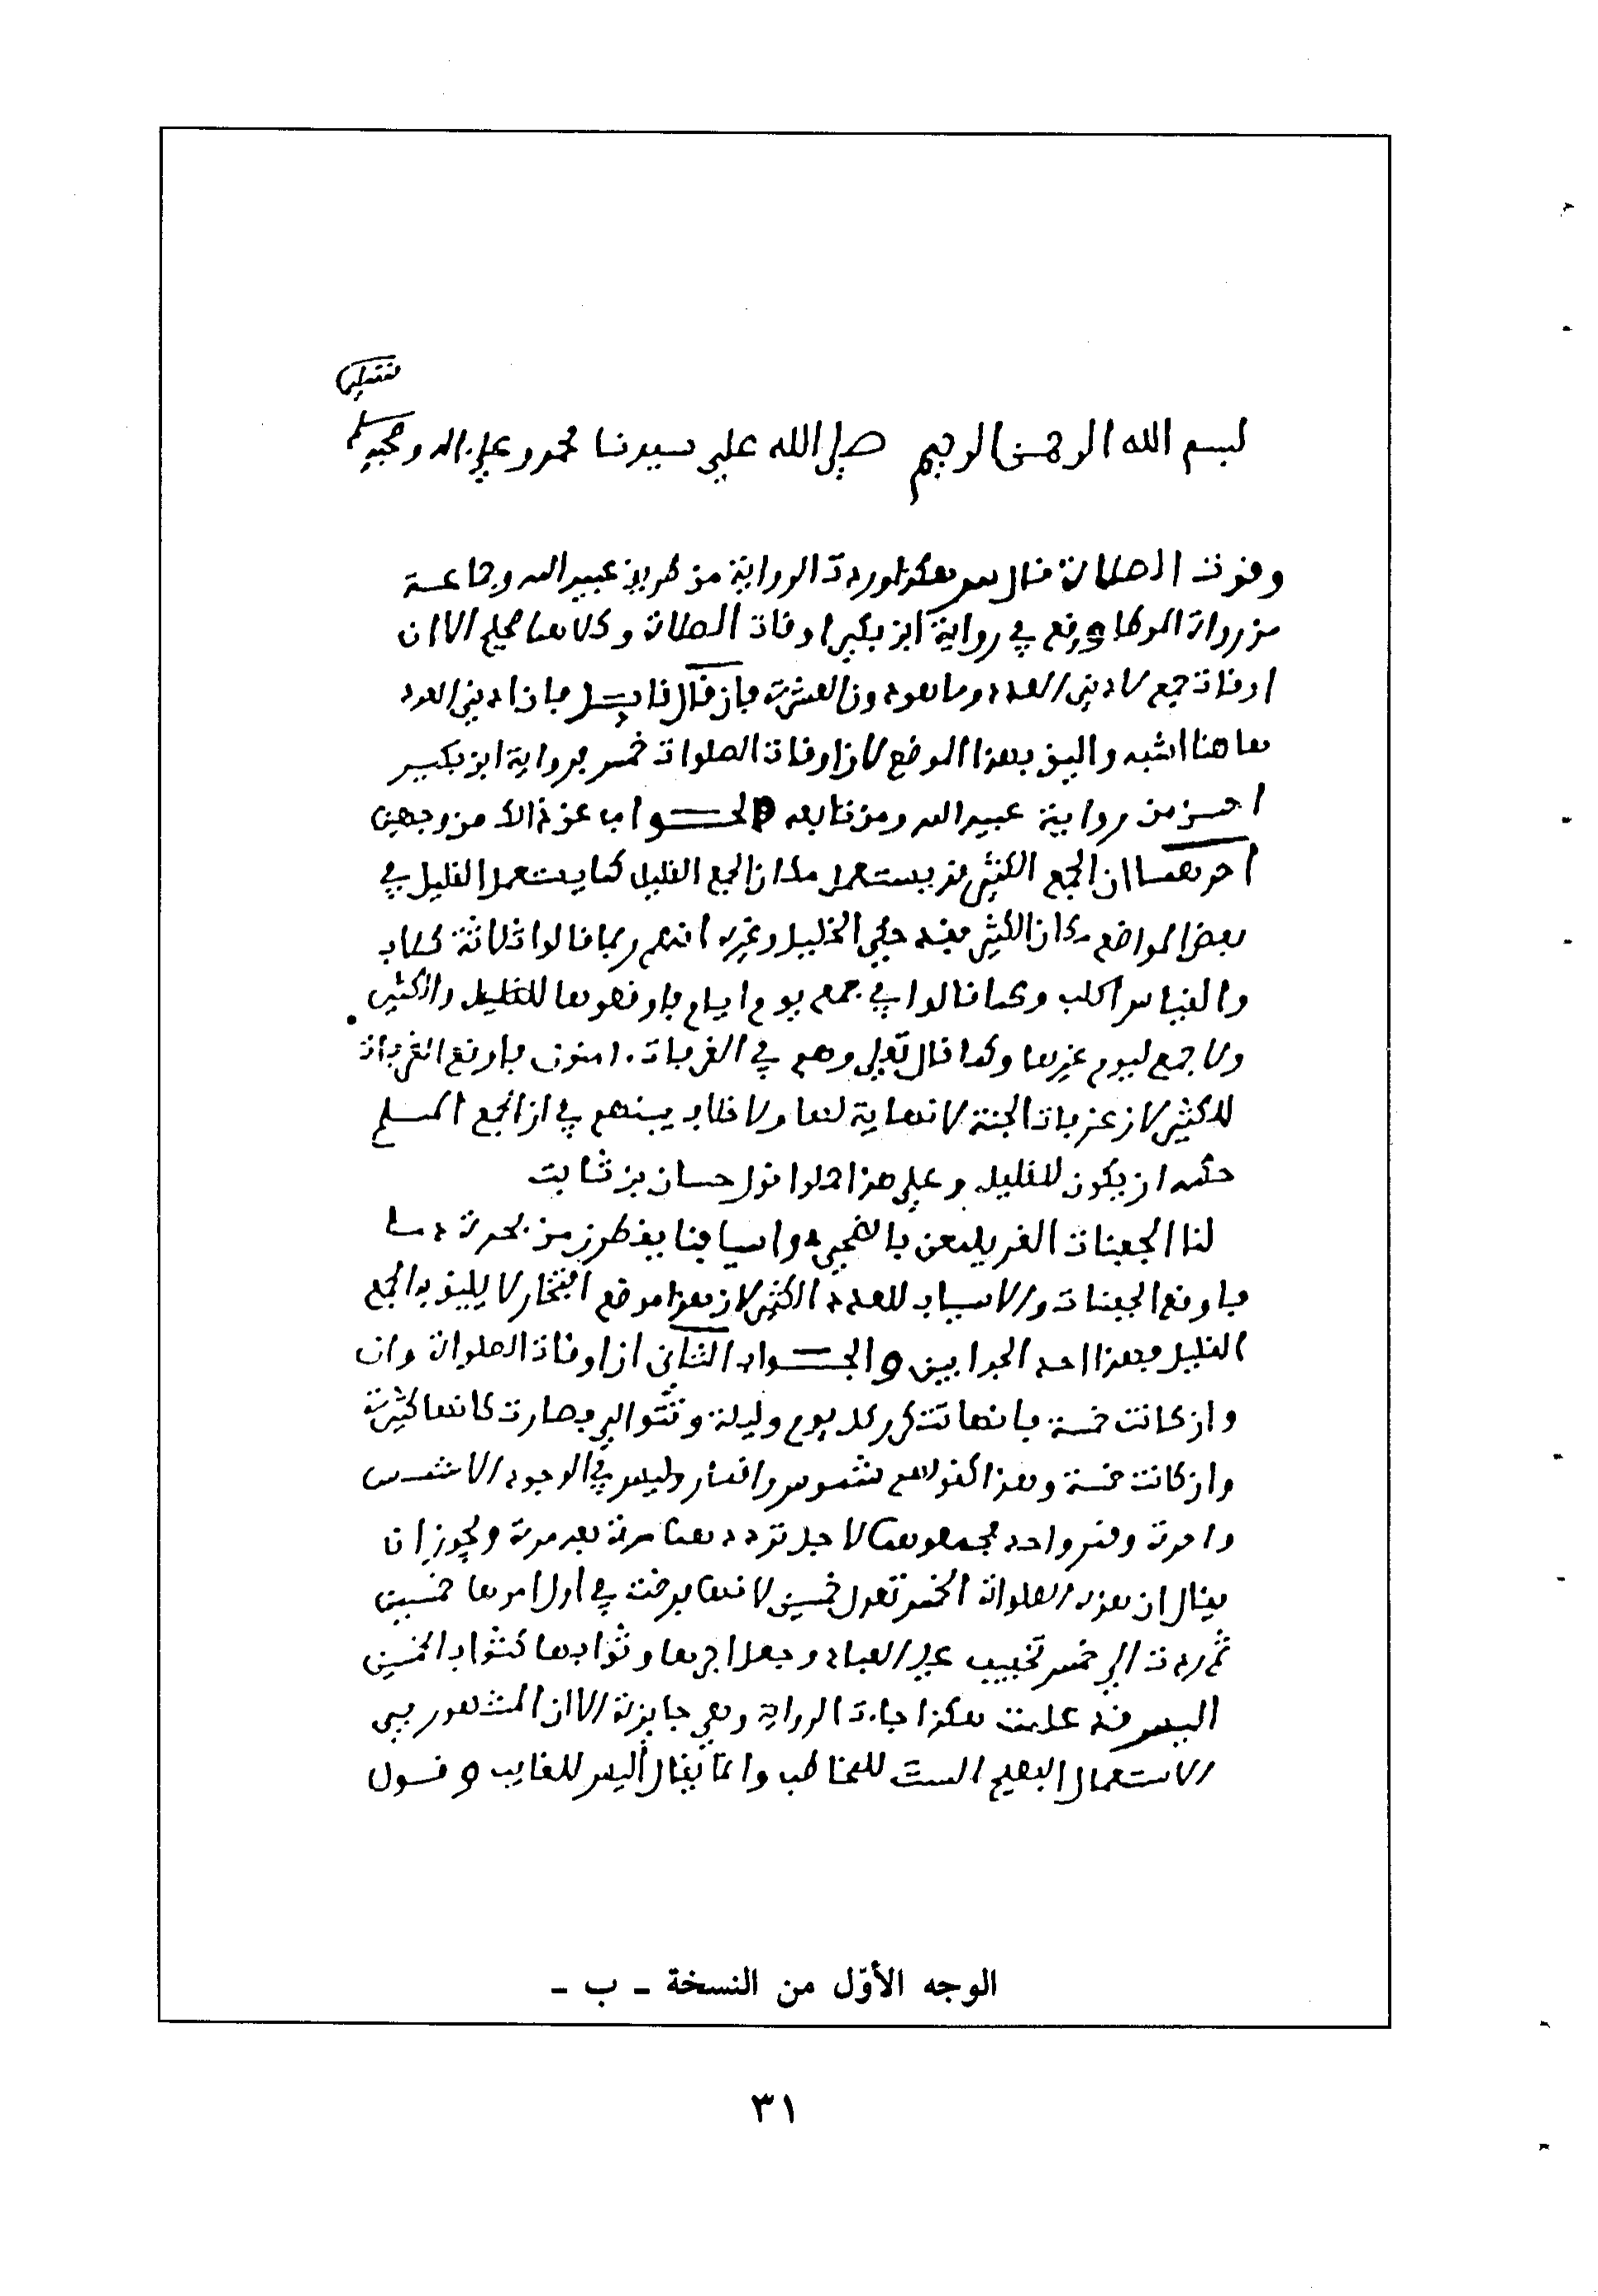 تسليما
بسم الله الرحمن الرحيم صلى الله على سيدنا محمد وعلى ءاله وصحبه وسلم
وقوت الصلاة قال س هكذا وردت الرواية من طريق عبيد الله وجماعة
من رواة الموطا ووقع في رواية ابن بكير اوقات الصلاة وكلاهما صحيح الا ان
اوقات جمع لادنى العدد وما هو دون العشرة فان قال قايل فان ادنى العدد
هاهنا اشبه واليق بهذا الموضع لان اوقات الصلوات خمس فرواية ابن بكير
احسن من رواية عبيد الله ومن تابعه والجواب عن ذالك من وجهين
احدهما ان الجمع الكثير قد يستعمل مكان الجمع القليل كما يستعمل القليل في
بعض المواضع مكان الكثير فقد حكى الخليل وغيره انهم ربما قالوا ثلاثة كلاب
والقياس اكلب وكما قالوا في جمع يوم ايام فاوقعوها للقليل والكثير
ولا جمع ليوم غيرها وكما قال تعلى وهم في الغرفات ءامنون فاوقع الغرفات
للكثير لان غرفات الجنة لا نهاية لها ولا خلاف بينهم في ان الجمع المسلم
حكمه ان يكون للقليل وعلى هذا تاولوا قول حسان بن ثابت
لنا الجفنات الغر يلمعن بالضحى واسيافنا يقطرن من نجدة دما
فاوقع الجفنات والاسياف للعدد الكثير لان هذا موضع افتخار لا يليق به الجمع
القليل فهذا احد الجوابين والجواب الثاني ان اوقات الصلوات وان
وان كانت خمسة فانها تتكرر كل يوم وليلة وتتوالى فصارت كانها كثيرة
وان كانت خمسة وهذا كقولهم شموس واقمار وليس في الوجود الا شمس
واحدة وقمر واحد فجمعوهما لاجل ترددهما مرة بعد مرة ويجوز ان
يقال ان هذه الصلوات الخمس تعدل خمسين لانها فرضت في اول امرها خمسين
ثم ردت الى خمس تخفيفا على العباد وجعل اجرها وثوابها كثواب الخمسين
اليس قد علمت هكذا جاءت الرواية وهي جايزة الا ان المشهور في
الاستعمال الفصيح الست للمخاطب وانما يقال أليس للغايب وقول
الوجه الأوّل من النسخة - ب -
٣١